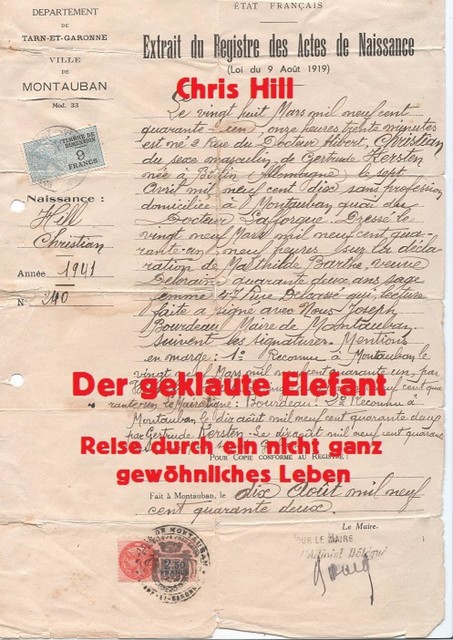 DEPARTEMENT
DE
TARN-ET-GARONNE
VILLE
DE
MONTAUBAN
Mod. 33
TIMBRE DE
DIMENSION
9
FRANCS
Naissance :
Hill
Christian
Année 1941
N° 240
ÉTAT FRANÇAIS
Extrait du Registre des Actes de Naissance
(Loi du 9 Août 1919)
Chris Hill
Le vingt huit Mars mil neuf cent
quarante-un, onze heures trente minutes
est né 2 Rue du Docteur Alibert, Christian
du sexe masculin, de Gertrude Kersten
née à Berlin (Allemagne) le sept
Avril mil neuf cent dix sans profession
domiciliée à Montauban quai du
Docteur Lafforgue. Dressé le
vingt neuf Mars mil neuf cent qua-
rante-un, neuf heures sur la décla-
ration de Mathilde Barthe, veuve
Delorain quarante deux ans sage
femme 47 rue Delcassé qui, lecture
faite a signé avec Nous Joseph
Bourdeau Maire de Montauban
suivent les signatures. Mentions
en marge : 1° Reconnu à Montauban le
vingt neuf Mars mil neuf cent quarante-un par
Der geklaute Elefant
neuf cent qua-
rante-un le Maire signé : Bourdeau : 2° Reconnu à
Montauban le dix août mil neuf cent quarante deux
par Gertrude Kersten. Le dix août mil neuf cent quarante
Reise durch ein nicht ganz
gewöhnliches Leben
POUR COPIE CONFORME AU REGISTRE :
Fait à Montauban, le dix Août mil neuf
cent quarante deux.
Le Maire,
POUR LE MAIRE
L'Adjoint Délégué
DE MONTAUBAN
2.50
FRANCS
TARN-ET-GARONNE